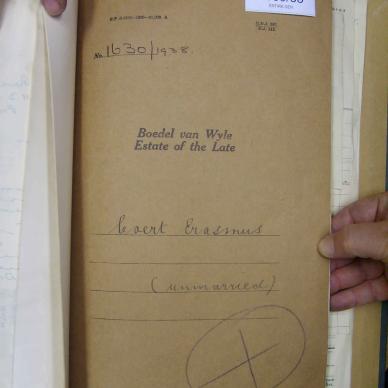 No. 1630/1938.
Boedel van Wyle
Estate of the Late
Coert Erasmus
(unmarried)